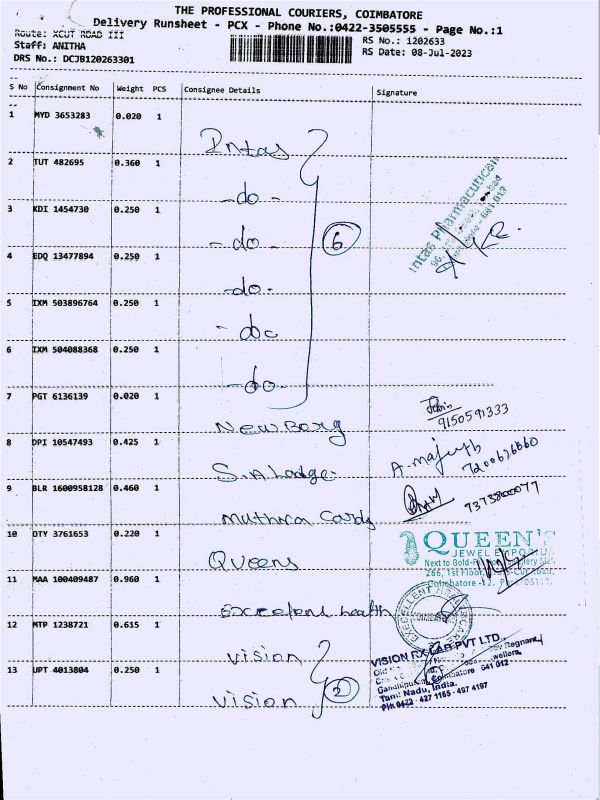 THE PROFESSIONAL COURIERS, COIMBATORE
Delivery Runsheet - PCX - Phone No.:0422-3505555 - Page No.:1
Route: XCUT ROAD III
RS No.: 1202633
Staff: ANITHA
RS Date: 08-Jul-2023
DRS No.: DCJB120263301
S No Consignment No Weight PCS Consignee Details Signature
1 MYD 3653283 0.020 1
Intas
2 TUT 482695 0.360 1
-do-
3 KDI 1454730 0.250 1
-do-
6
4 EDQ 13477894 0.250 1
-do-
Intas Pharmaceutical
641 012
5 IXM 503896764 0.250 1
-do-
6 IXM 504088368 0.250 1
-do-
7 PGT 6136139 0.020 1
Newberg
9150591333
8 DPI 10547493 0.425 1
S.A Lodge
7200676860
9 BLR 1600958128 0.460 1
Muthra Cards
7373800077
10 OTY 3761653 0.220 1
Queens
QUEEN'S
JEWEL EMPORIUM
Next to Gold
286, 1st Floor, Cut Road,
Coimbatore -12.
11 MAA 100409487 0.960 1
Excellent health
EXCELLENT
12 MTP 1238721 0.615 1
vision
VISION RX LAB PVT LTD
13 UPT 4013804 0.250 1
vision
2
Gandhipuram, Coimbatore 641 012
Tamil Nadu, India.
PH: 0422 - 427 1165 - 497 4197